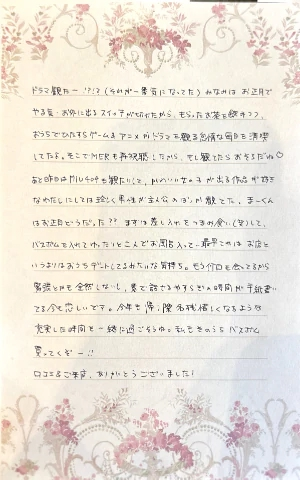 ドラマ観たー!?!?(それが一番気になってた)みなみは お正月で
やる気・お外に出るスイッチが切れたから、もらったお茶を飲みつつ、
おうちでひたすらゲーム&アニメかドラマを観る怠惰な毎日を清喫
してたよ。そこでMERも再視聴したから、もし観てたらおそろだね♡
あと昨日はMIU404も観たいて、
女の子が出る作品が好き
なわたしにしては珍しく男性が主人公のほうが観てた。まーくん
はお正月どうだった?? まずは差し入れをつまみ食い(笑)して、
バスボム入れてわーいとこんどお風呂入って…最早これは お店と
いうよりはおうちデート(してるみたいな気持ち。もう何回も会ってるから
緊張とかを全然しないし、素で話せるやすらぎの時間が手紙書い
てる今も恋しいです。今年も
名残惜しくなるような
充実した時間を一緒に過ごそうね。私もきのうち バスボム
買ってくぞー!!
口コミ&ご来店、ありがとうございました!